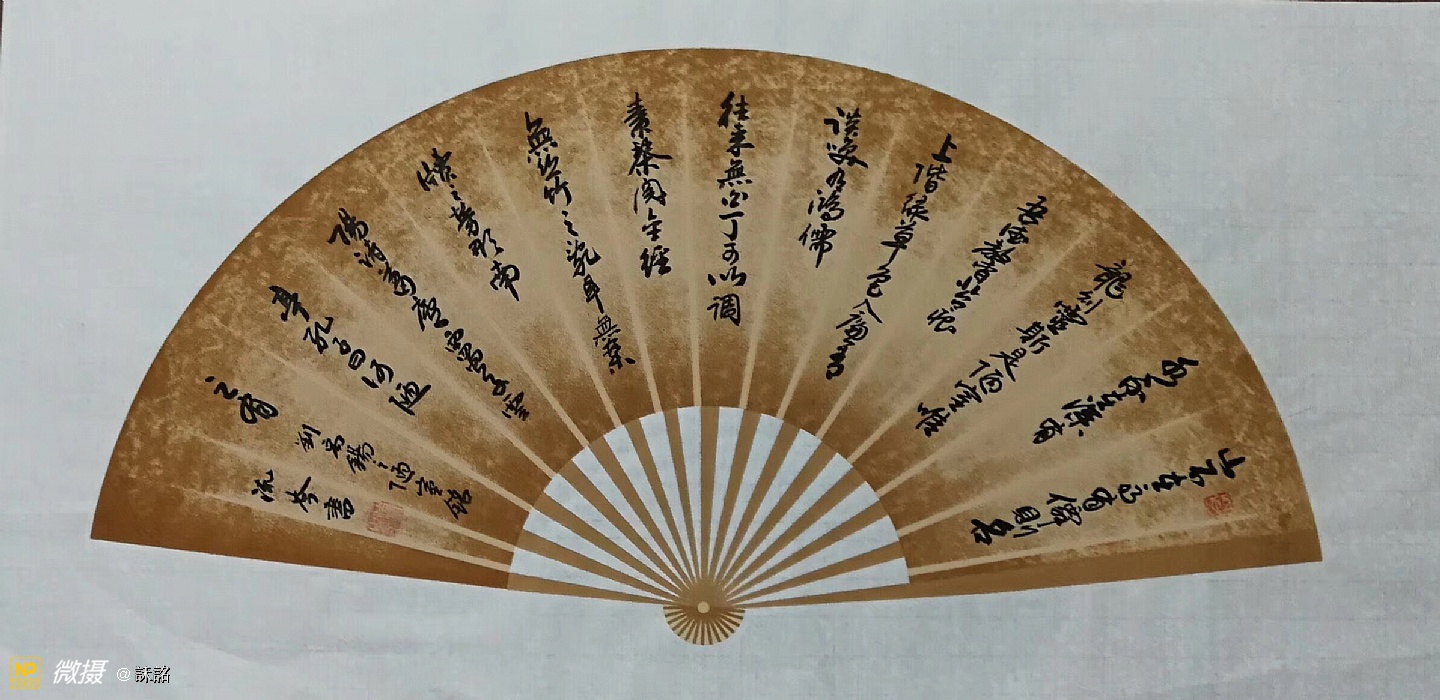 山不在高有僊則名
水不在深有
龍則靈斯是陋室惟
吾德馨苔痕
上階綠草色入簾青
談笑有鴻儒
往來無白丁可以调
素琴閱金經
無絲竹之亂耳無案
牘之勞形南
陽諸葛廬西蜀子雲
亭孔子曰何陋
之有
劉禹錫陋室銘
書
微摄 @